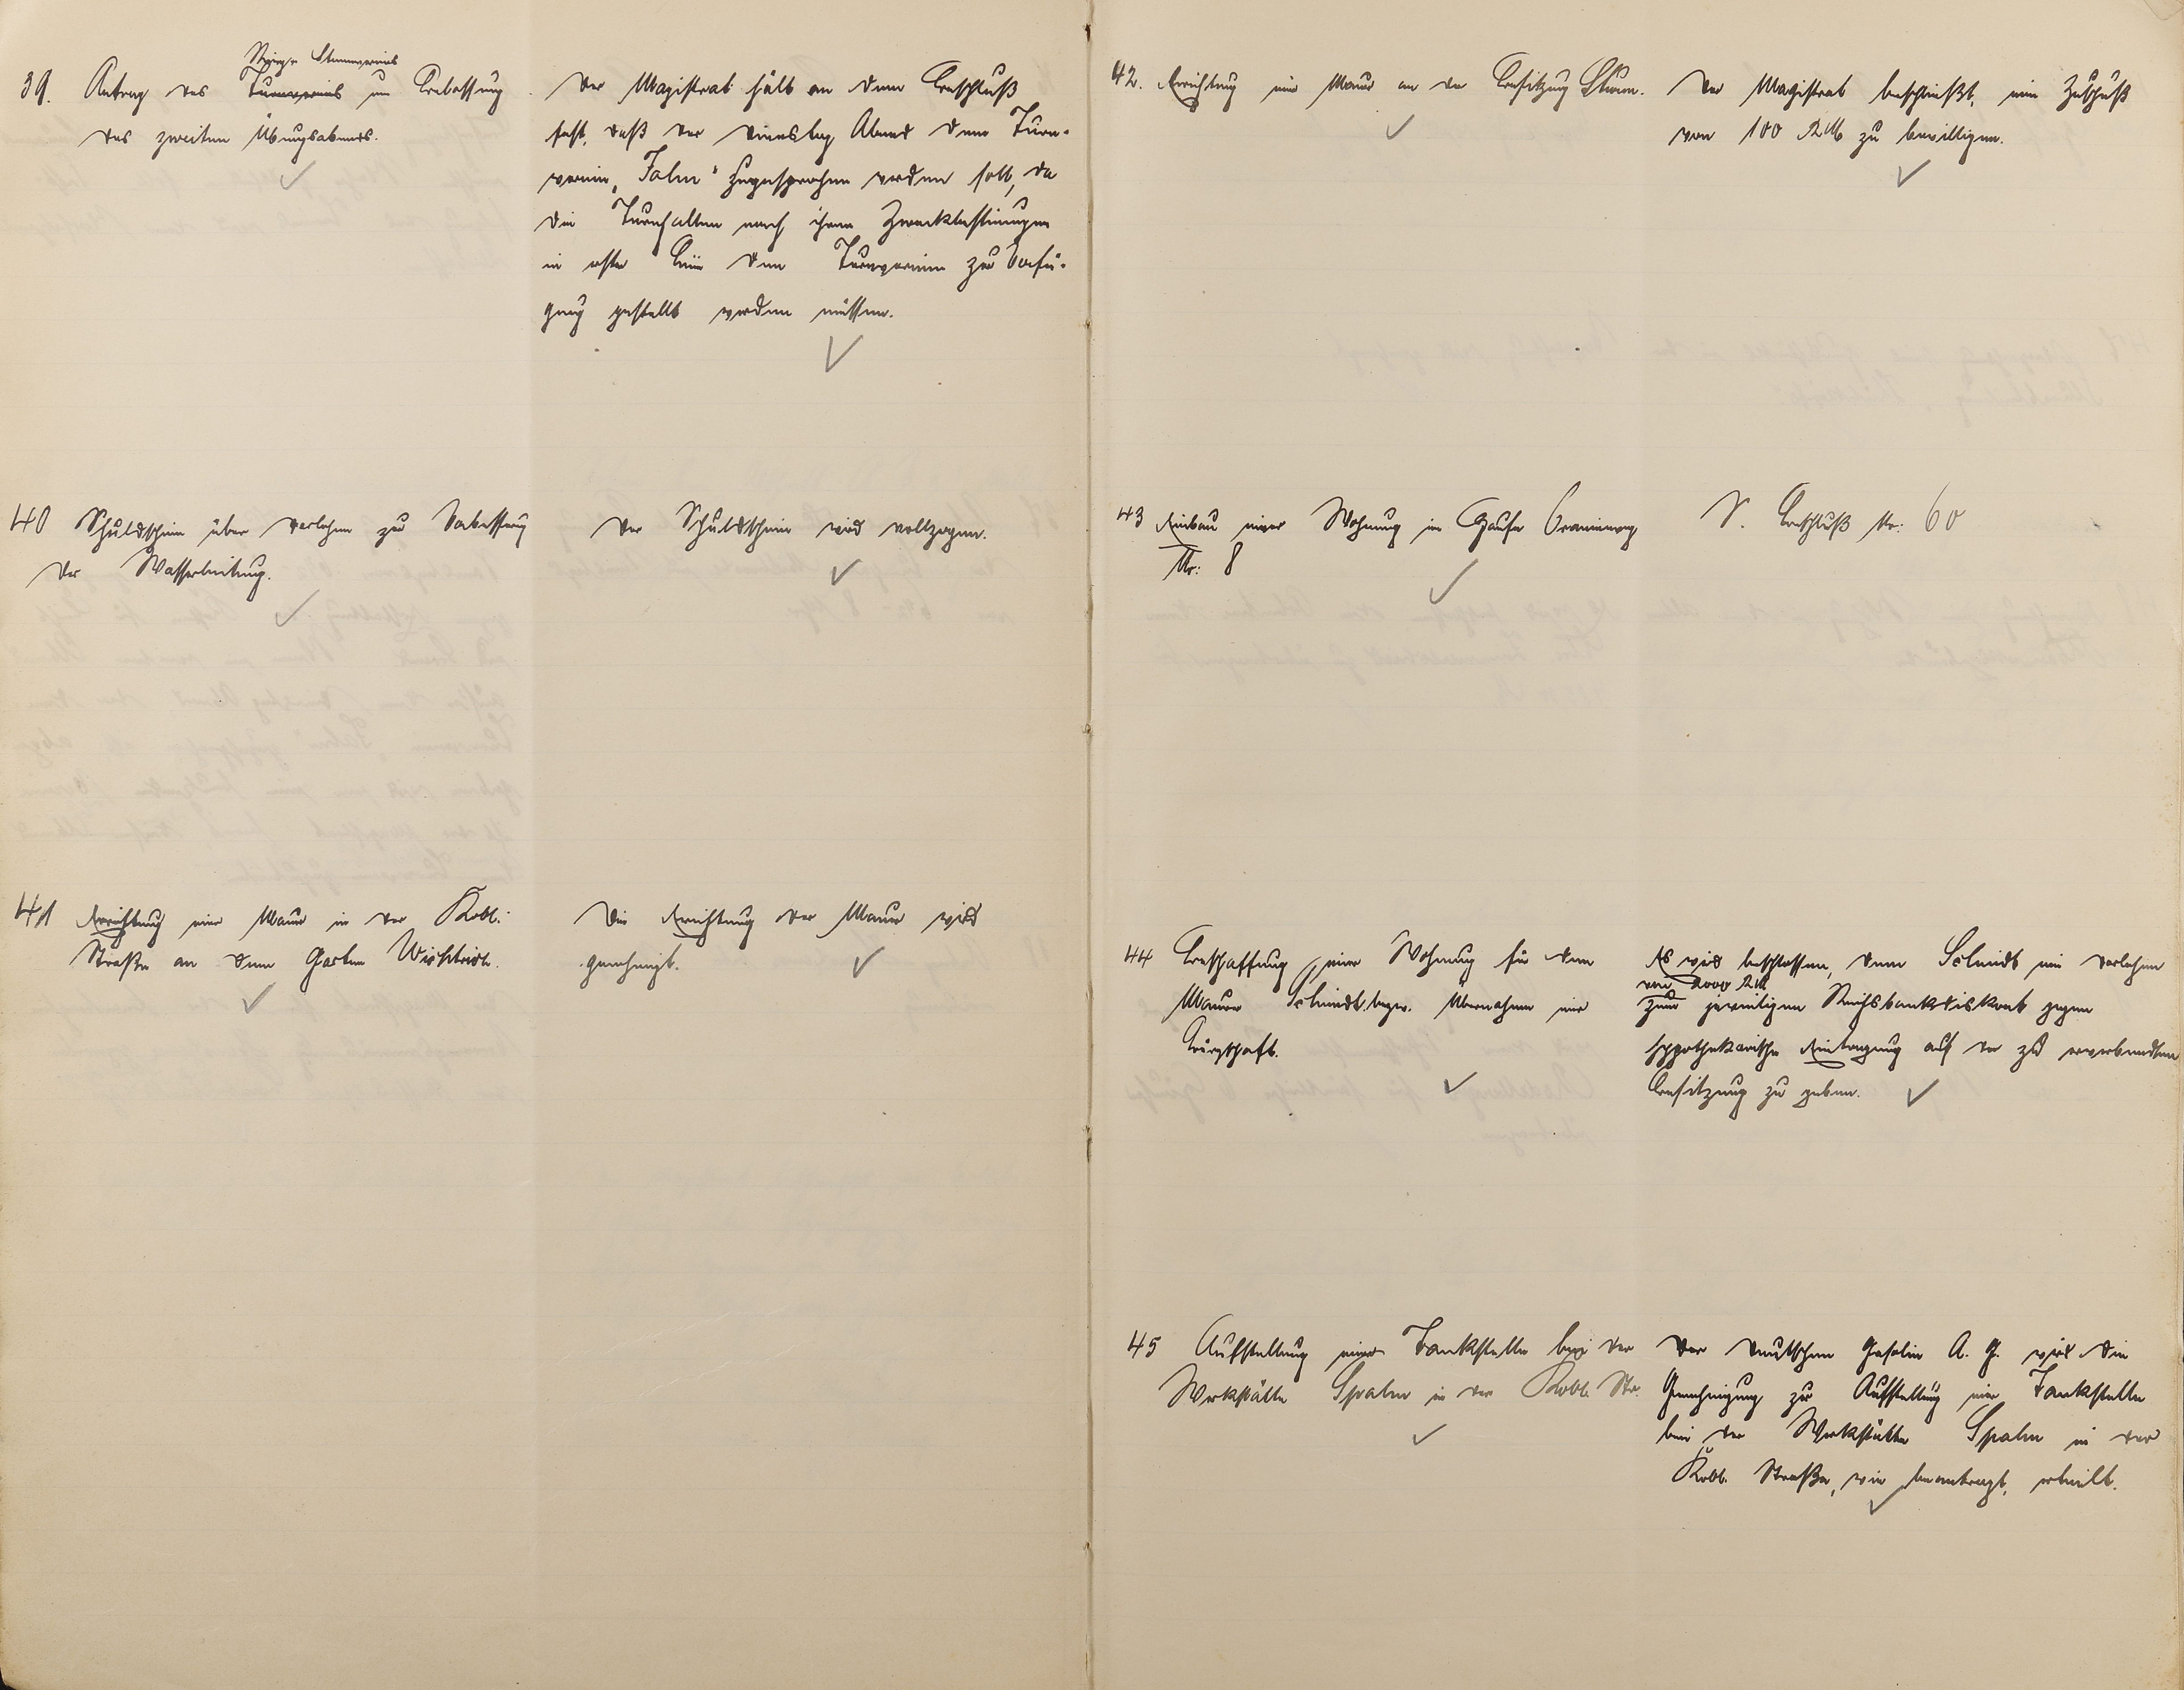 39. Antrag des Turnvereins um Belassung
des zweiten Übungsabends.
Der Magistrat hält an dem Beschluß
fest, daß der Dienstag Abend dem Turn-
verein „Jahn" zugesprochen werden soll, da
die Turnhallen nach ihren Zweckbestimmungen
in erster Linie den Turnvereinen zur Verfü-
gung gestellt werden müssen.
40 Schuldschein über Darlehen zur Verbesserung
der Wasserleitung.
Der Schuldschein wird vollzogen.
41 Errichtung einer Mauer in der Kobl.
Straße an dem Garten
Die Errichtung der Mauer wird
genehmigt.
42. Errichtung einer Mauer an der Besitzung Sturm.
Der Magistrat beschließt, einen Zuschuß
von 100 RM zu bewilligen.
43 Einbau einer Wohnung im Hause Oranienweg
Nr: 8
S. Beschluß Nr: 60
44 Beschaffung einer Wohnung für den
Maurer Schmidt bezw. Übernahme einer
Bürgschaft.
Es wird beschlossen, dem Schmidt ein Darlehen
von 2000 RM
zum jeweiligen Reichsbankdiskont gegen
hypothekarische Eintragung auf der zu erwerbenden
Besitzung zu geben.
45 Aufstellung einer Tankstelle bei der
Werkstätte Spahn in der Kobl. Str.
Der Deutschen Gasolin A. G. wird die
Genehmigung zur Aufstellung einer Tankstelle
bei der Werkstätte Spahn in der
Kobl. Straße, wie beantragt, erteilt.